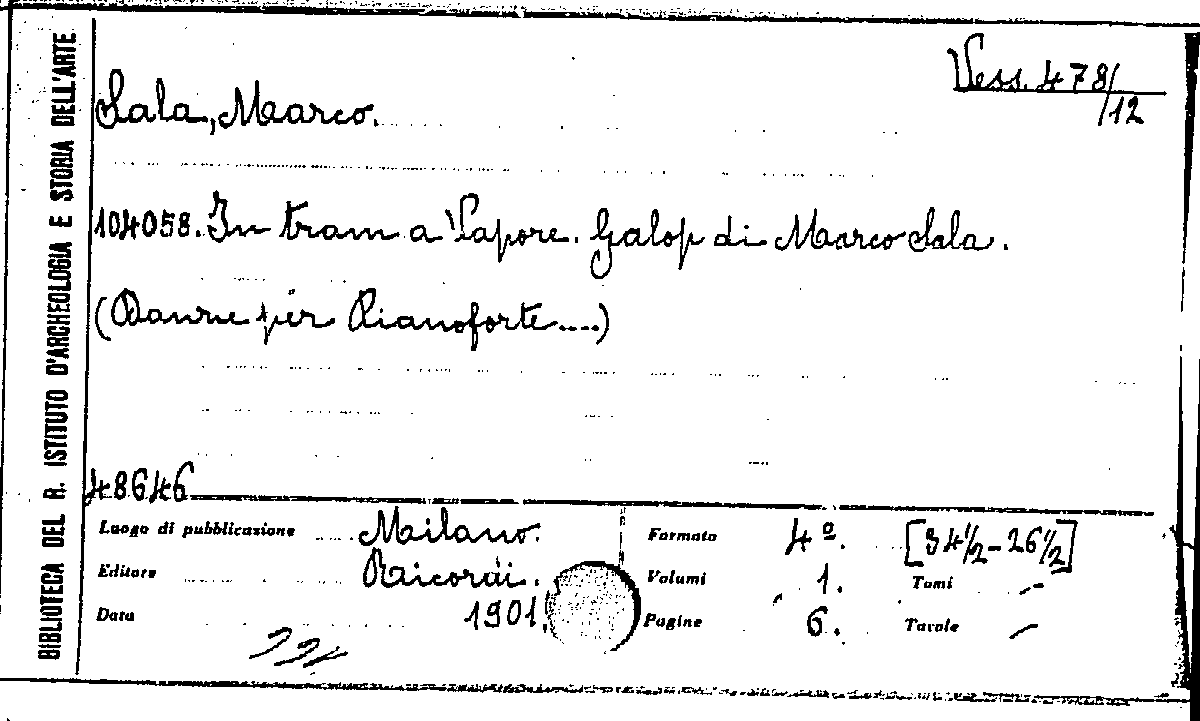 BIBLIOTECA DEL R. ISTITUTO D'ARCHEOLOGIA E STORIA DELL'ARTE
Vess. 478/12
Sala, Marco.
104058. In tram a Vapore. Galop di Marco Sala.
(Danze per Pianoforte....)
48646
Luogo di pubblicazione Milano. Formato 4º. [34½-26½]
Editore Ricordi. Volumi 1. Tomi –
Data 1901. Pagine 6. Tavole –